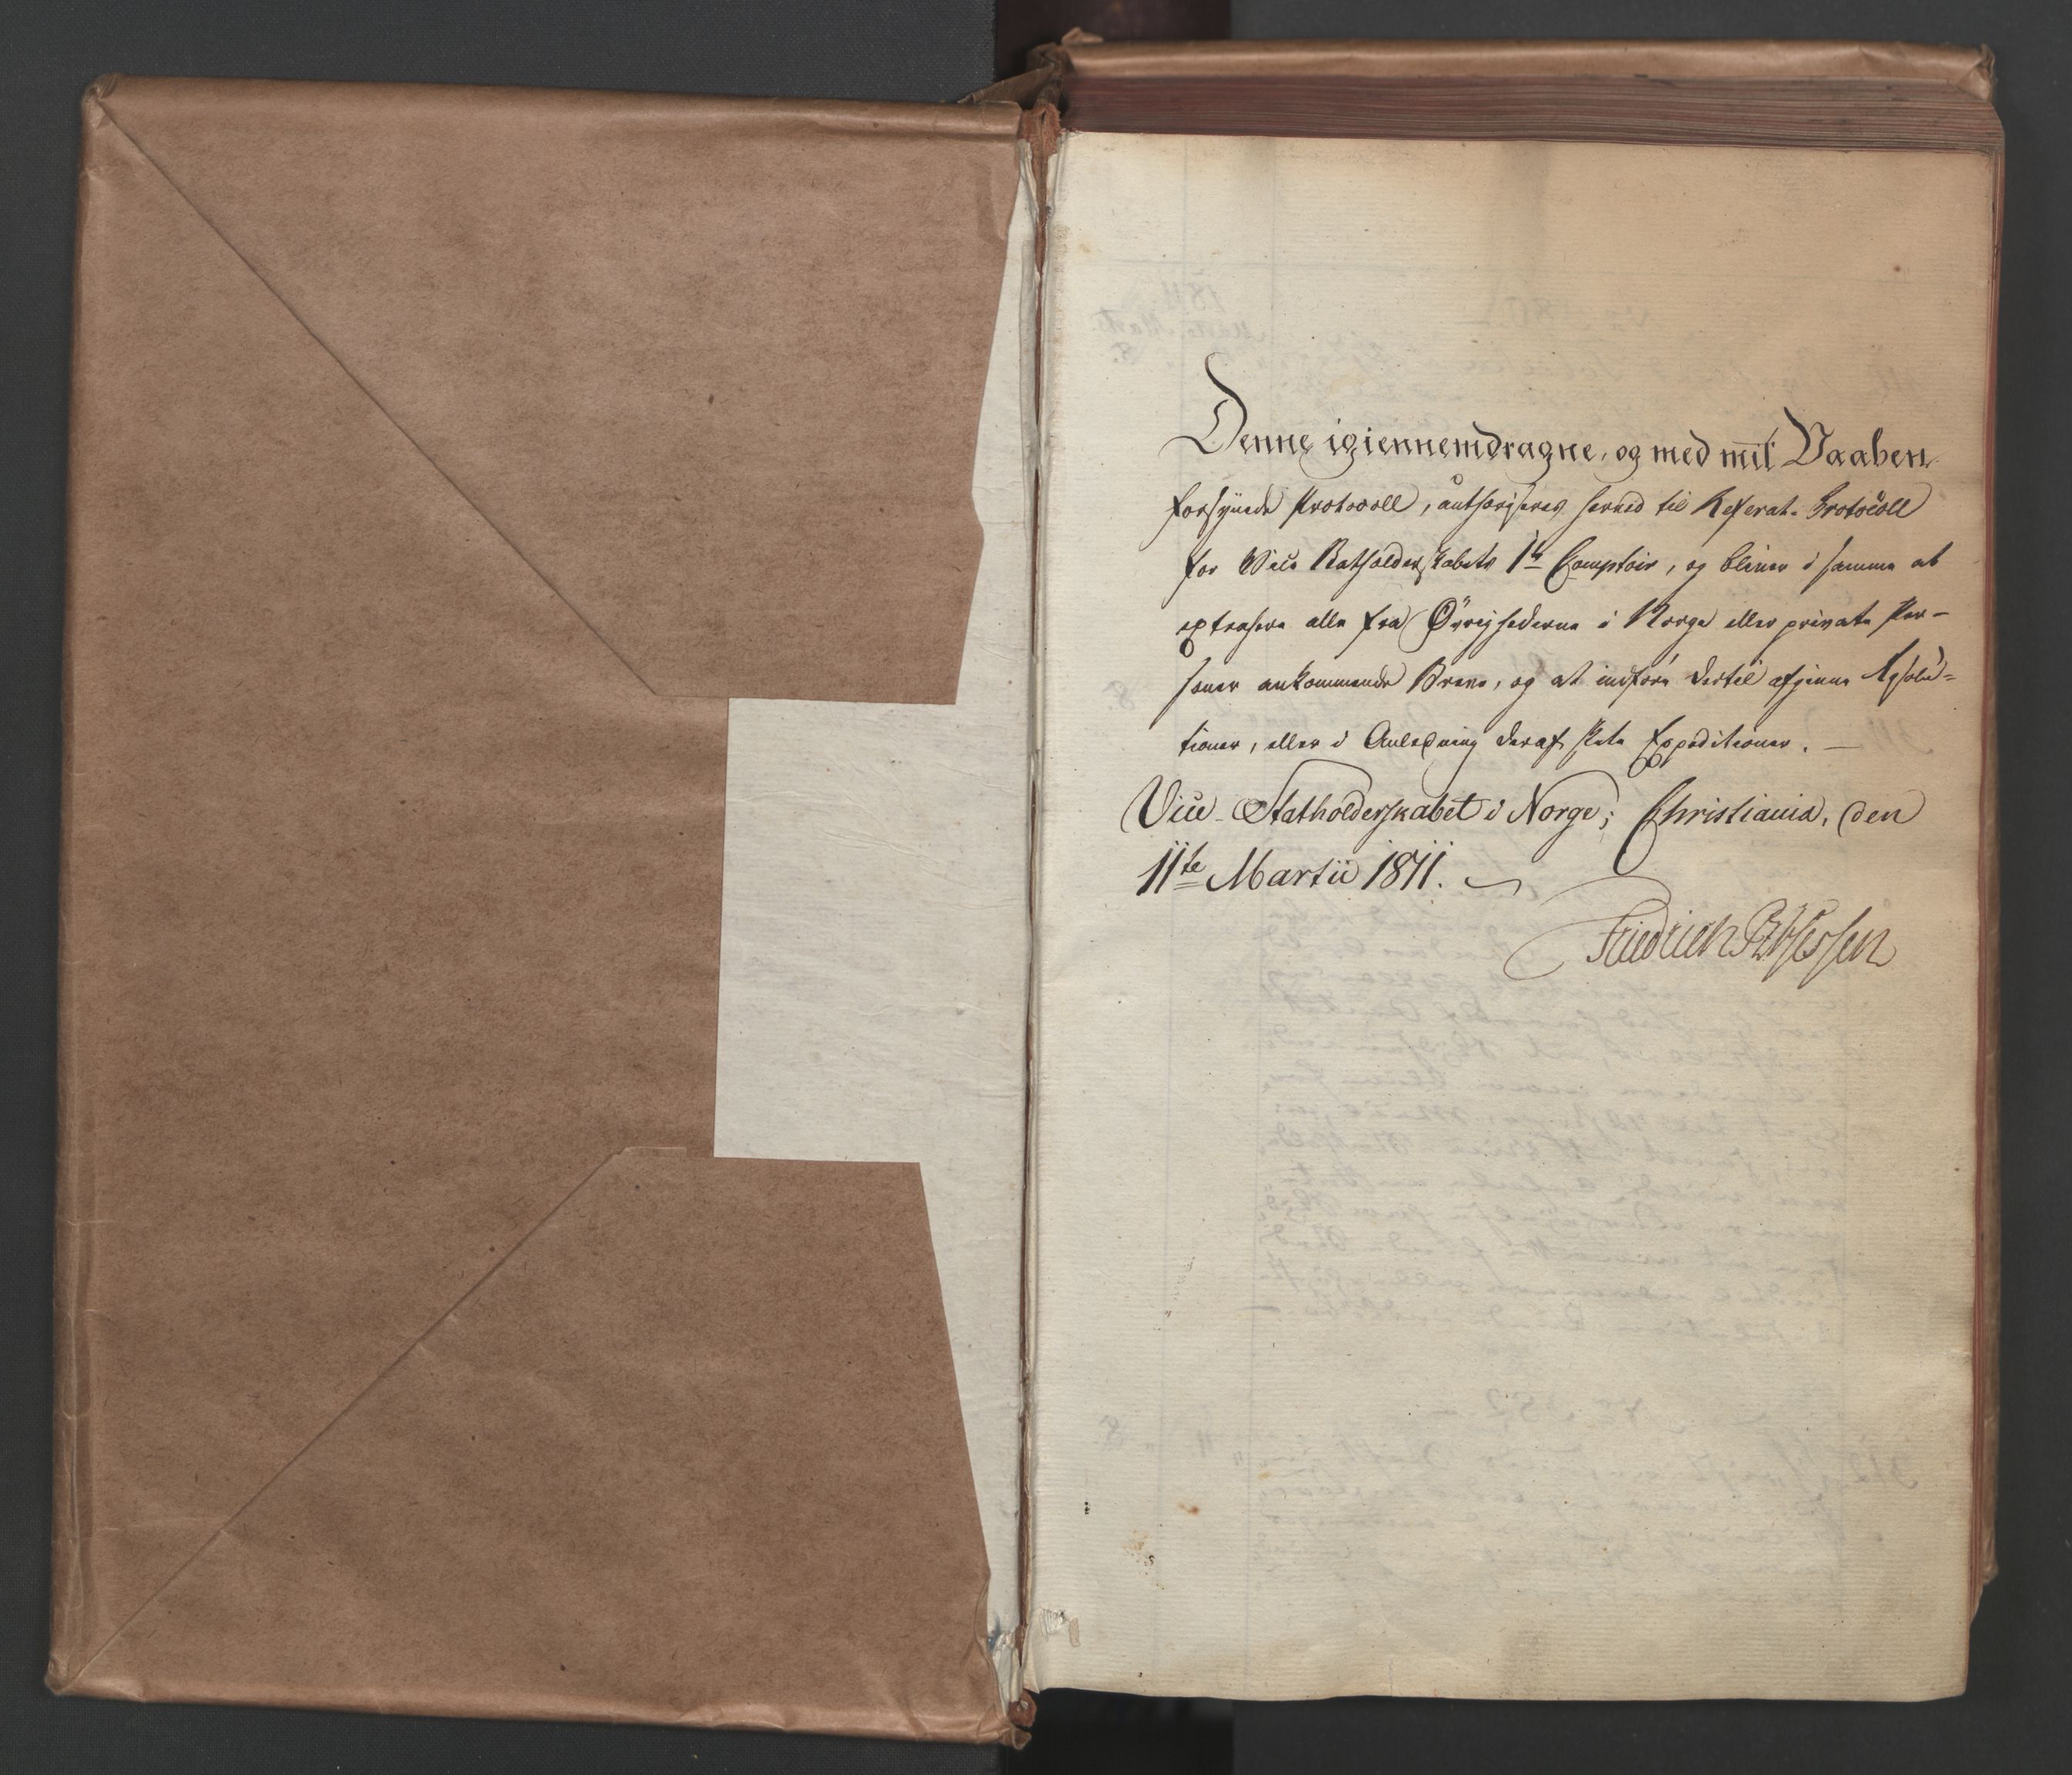 Denne igiennemdragne, og med mit Vaaben
forsynede Protocoll, authoriseres herved til Referat-Protocoll
for Vice Statholderskabets 1te Comptoir, og bliver i samme at
extrahere alle fra Øvrighederne i Norge eller private Per-
soner ankommende Breve, og at indføre dertil afgivne Resolu-
tioner, eller i Anledning deraf skete Expeditioner. —
Vice-Statholderskabet i Norge; Christiania, den
11te Martii 1811.
Friedrich PzHessen